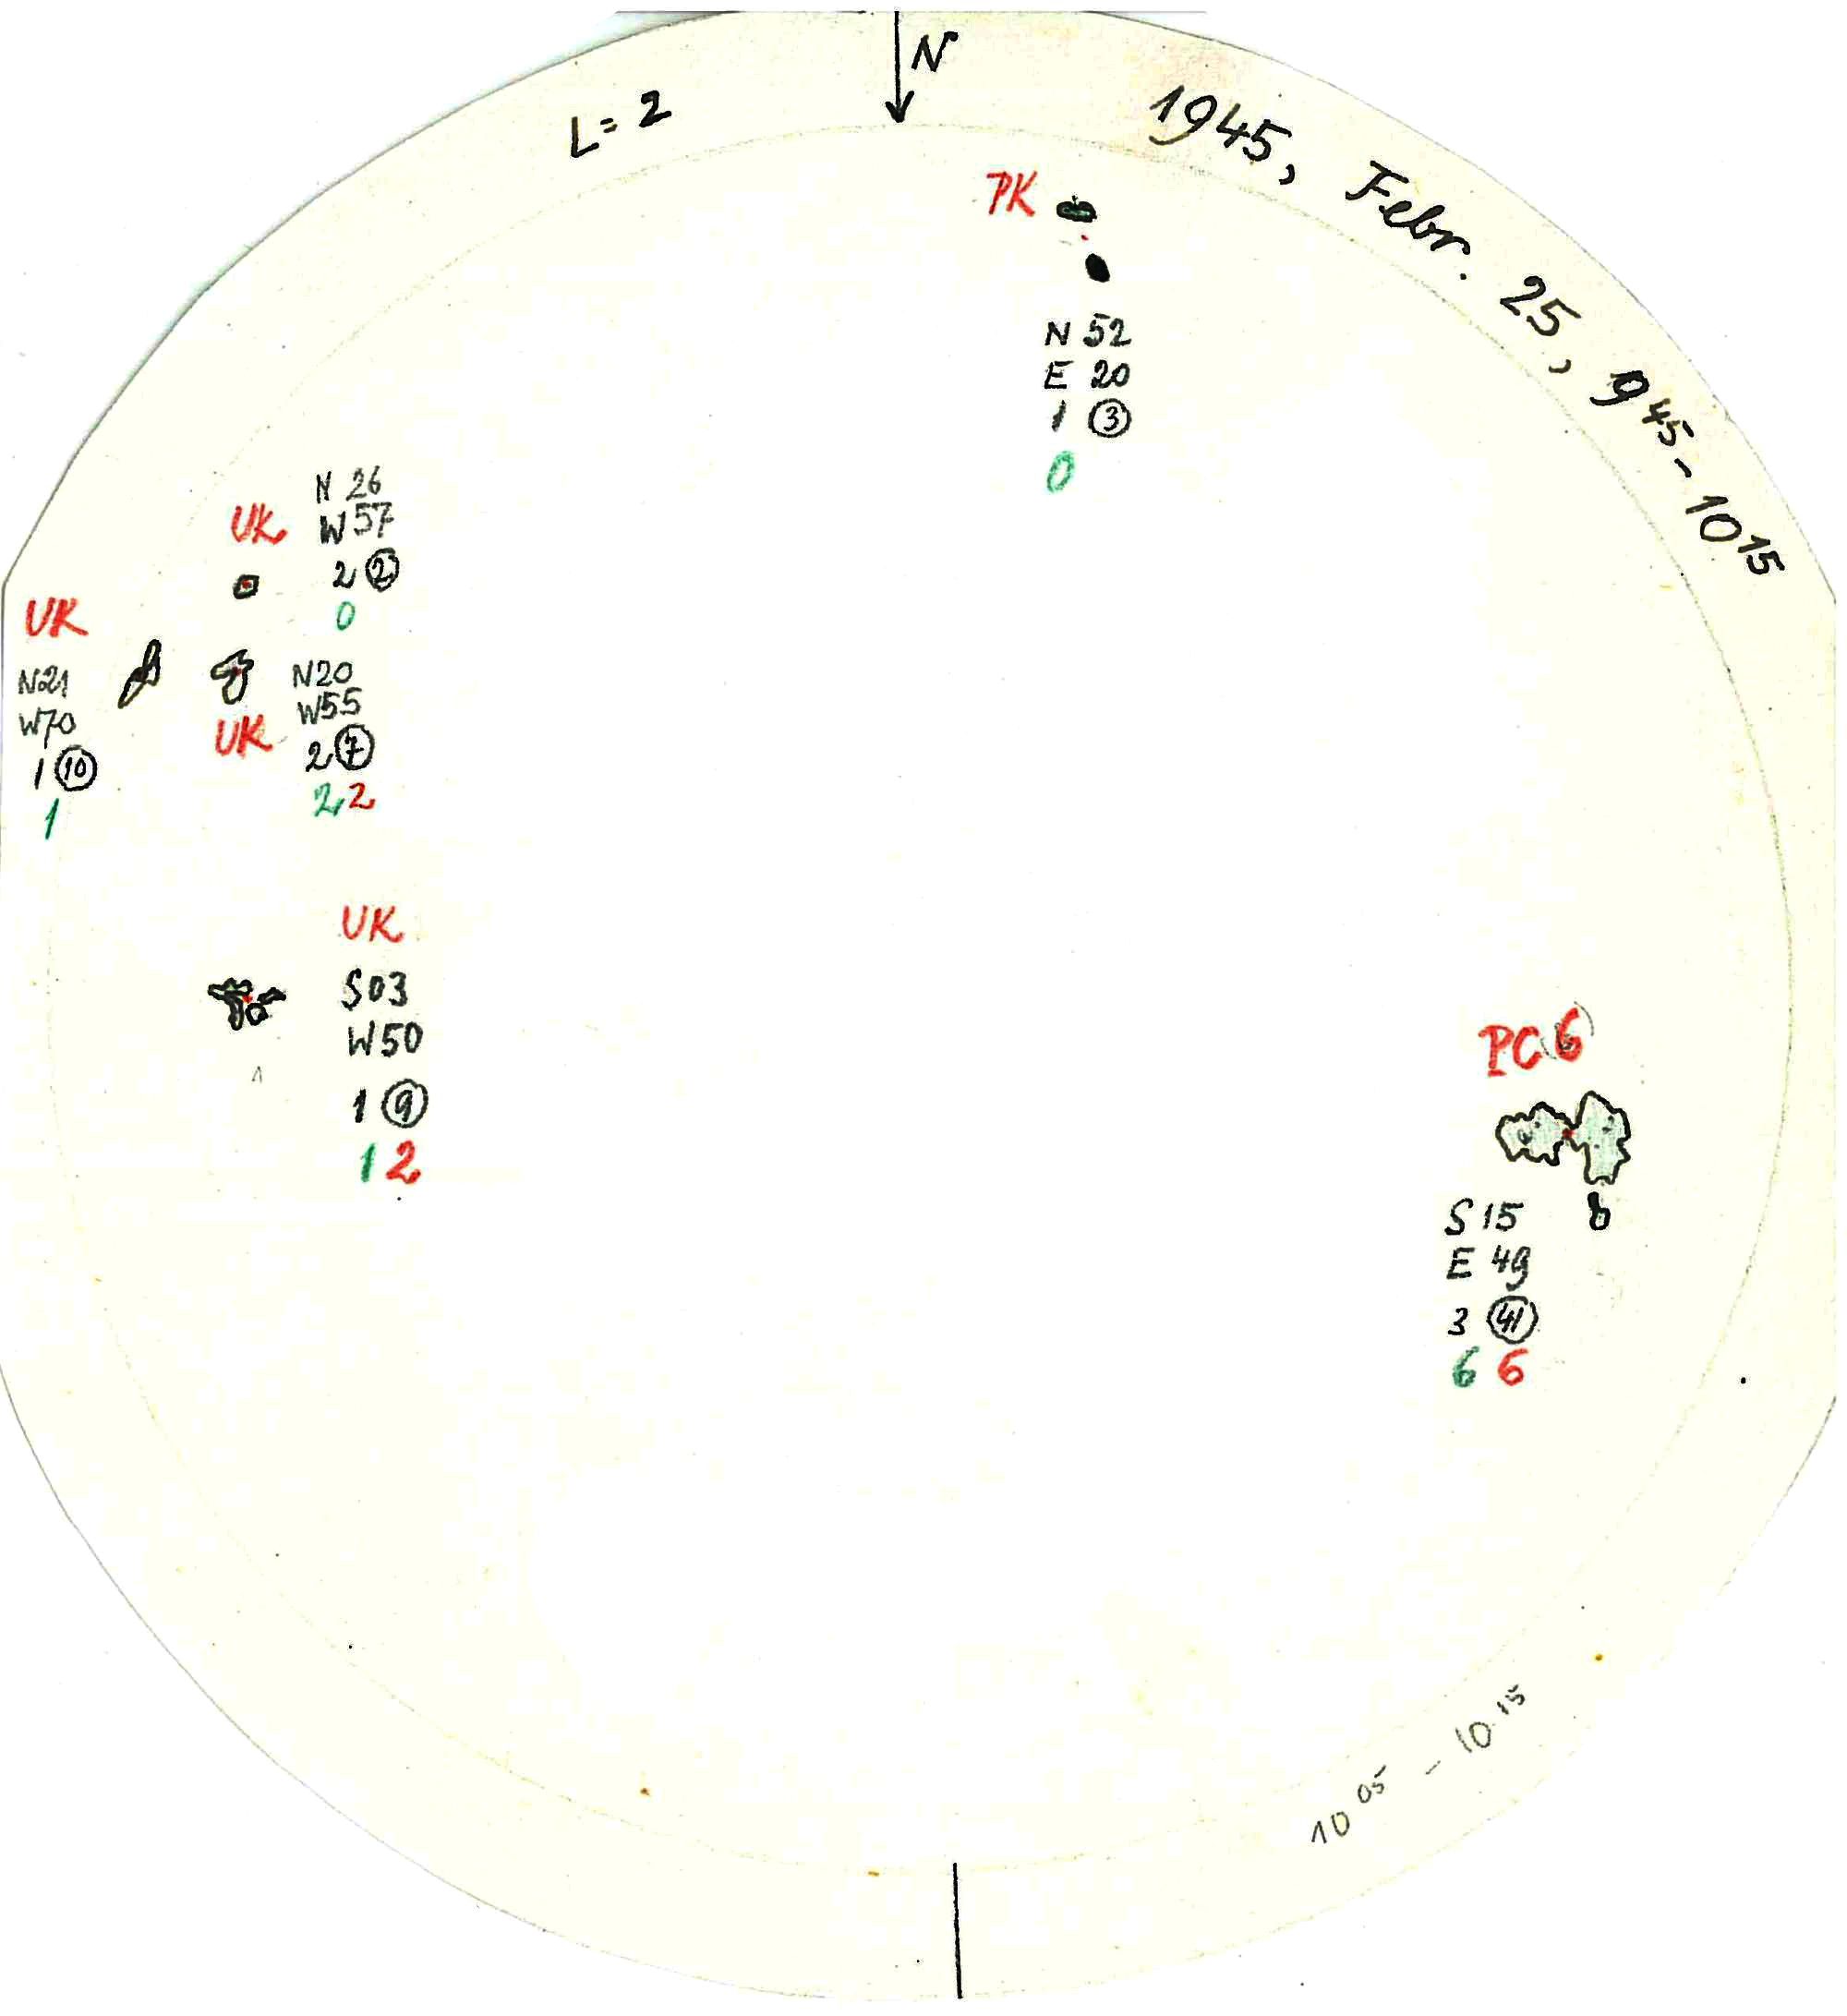 N
L = 2
1945, Febr. 25, 9 45 - 10 15
PK
N 52
E 20
1 3
0
N 26
W 57
2 2
0
UK
UK
N21
W70
1 10
1
N20
W55
2 7
2 2
UK
UK
S 03
W 50
1 9
1 2
PC 6
S 15
E 49
3 41
6 6
10 05 - 10 15